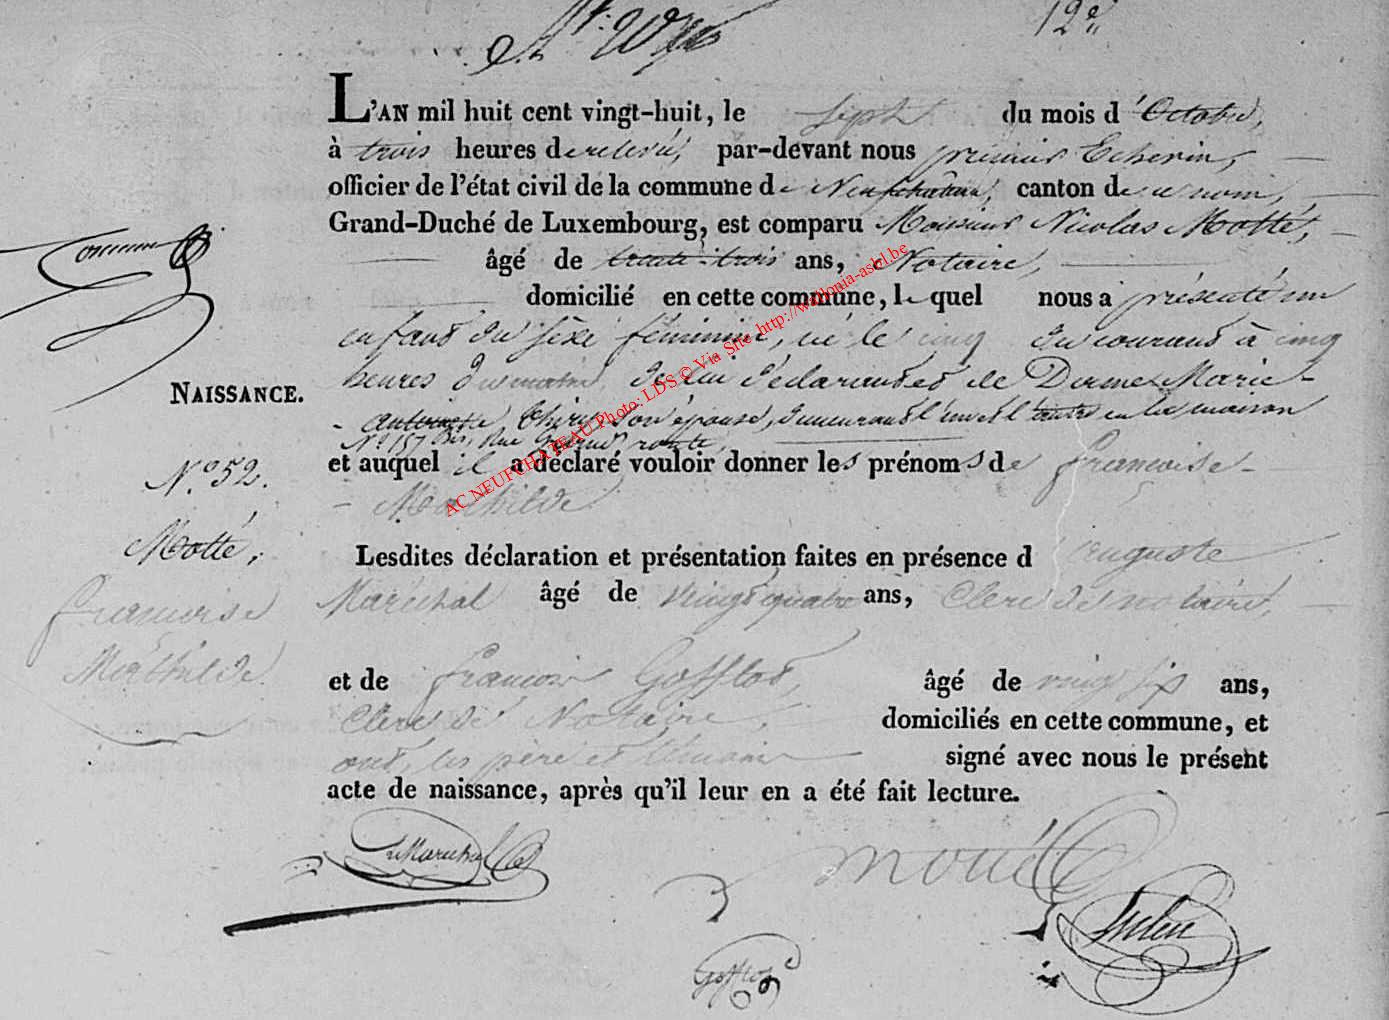 12e
L'AN mil huit cent vingt-huit, le sept du mois d'Octobre,
à trois heures de relevé, par-devant nous premier Echevin,
officier de l'état civil de la commune de Neufchateau, canton de ce nom,
Grand-Duché de Luxembourg, est comparu Monsieur Nicolas Motté,
âgé de trente-trois ans, Notaire,
domicilié en cette commune, le quel nous a présenté un
enfant du sexe féminin, né le cinq du courant à cinq
heures du matin, de lui déclarant et de Dame Marie
antoinette Thiry son épouse, demeurant l'un et l'autre en la maison
No 157 bis, Rue Grand route,
et auquel il a déclaré vouloir donner les prénoms de francoise
Mathilde
Lesdites déclaration et présentation faites en présence d'auguste
Maréchal âgé de vingt quatre ans, Clerc de notaire,
et de francois Gofflot, âgé de vingt six ans,
Clerc de Notaire, domiciliés en cette commune, et
ont, les père et témoins signé avec nous le présent
acte de naissance, après qu'il leur en a été fait lecture.
NAISSANCE.
No. 52.
Motté,
francoise
Mathilde
Maréchal
Motté
Gofflot
AC NEUFCHATEAU Photo: LDS © Via Site http://wallonia-asbl.be